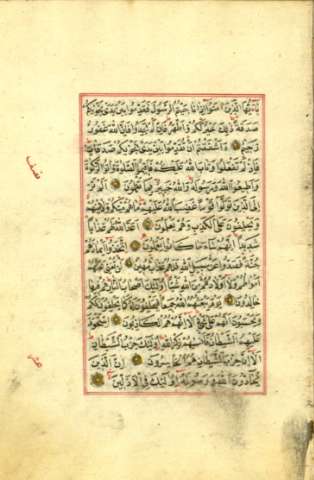 يَا أَيُّهَا الَّذِينَ آمَنُوا إِذَا نَاجَيْتُمُ الرَّسُولَ فَقَدِّمُوا بَيْنَ يَدَيْ نَجْوٰيكُمْ
صَدَقَةً ذٰلِكَ خَيْرٌ لَكُمْ وَأَطْهَرُ فَإِنْ لَمْ تَجِدُوا فَإِنَّ اللّٰهَ غَفُورٌ
رَحِيمٌ ءَأَشْفَقْتُمْ أَنْ تُقَدِّمُوا بَيْنَ يَدَيْ نَجْوٰيكُمْ صَدَقَاتٍ
فَإِذْ لَمْ تَفْعَلُوا وَتَابَ اللّٰهُ عَلَيْكُمْ فَأَقِيمُوا الصَّلٰوةَ وَآتُوا الزَّكٰوةَ
وَأَطِيعُوا اللّٰهَ وَرَسُولَهُ وَاللّٰهُ خَبِيرٌ بِمَا تَعْمَلُونَ أَلَمْ تَرَ
إِلَى الَّذِينَ تَوَلَّوْا قَوْمًا غَضِبَ اللّٰهُ عَلَيْهِمْ مَا هُمْ مِنْكُمْ وَلَا مِنْهُمْ
وَيَحْلِفُونَ عَلَى الْكَذِبِ وَهُمْ يَعْلَمُونَ أَعَدَّ اللّٰهُ لَهُمْ عَذَابًا
شَدِيدًا إِنَّهُمْ سَاءَ مَا كَانُوا يَعْمَلُونَ اتَّخَذُوا أَيْمَانَهُمْ
جُنَّةً فَصَدُّوا عَنْ سَبِيلِ اللّٰهِ فَلَهُمْ عَذَابٌ مُهِينٌ لَنْ تُغْنِيَ عَنْهُمْ
أَمْوَالُهُمْ وَلَا أَوْلَادُهُمْ مِنَ اللّٰهِ شَيْئًا أُولٰئِكَ أَصْحَابُ النَّارِ هُمْ فِيهَا
خَالِدُونَ يَوْمَ يَبْعَثُهُمُ اللّٰهُ جَمِيعًا فَيَحْلِفُونَ لَهُ كَمَا يَحْلِفُونَ لَكُمْ
وَيَحْسَبُونَ أَنَّهُمْ عَلَى شَيْءٍ أَلَا إِنَّهُمْ هُمُ الْكَاذِبُونَ اسْتَحْوَذَ
عَلَيْهِمُ الشَّيْطَانُ فَأَنْسٰيهُمْ ذِكْرَ اللّٰهِ أُولٰئِكَ حِزْبُ الشَّيْطَانِ
أَلَا إِنَّ حِزْبَ الشَّيْطَانِ هُمُ الْخَاسِرُونَ إِنَّ الَّذِينَ
يُحَادُّونَ اللّٰهَ وَرَسُولَهُ أُولٰئِكَ فِي الْأَذَلِّينَ
نصف
عشر